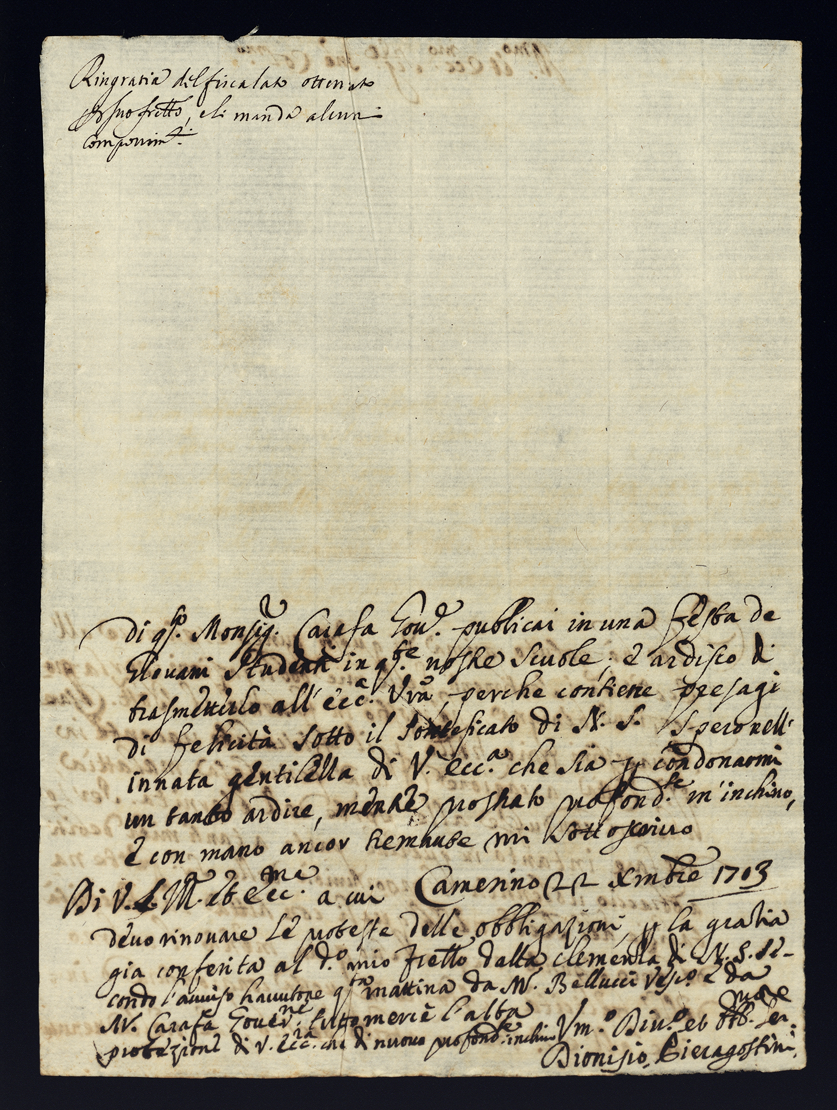 Ringratia del fiscalato ottenuto
suo frello, e li manda alcuni
componim.ti
di qsto. Monsig.r Carafa Gov.e publicai in una festa de
Giovani Studenti in q.ste nostre Scuole; e ardisco di
trasmetterlo all'ecc.a Vra, perche contiene presagi
di felicità sotto il Pontificato di N. S. Spero nell'
innata gentilezza di V. ecc.a che sia p condonarmi
un tanto ardire, mentre prostrato profond.te m'inchino,
e con mano ancor tremante mi sottoscrivo
Di V. S. Ill.ma et ecc.ma a cui Camerino 22 Xmbre 1703
devo rinovare le proteste delle obbligazioni, p la gratia
gia conferita al d.o mio frello dalla clemenza di N. S. se-
condo l'avviso havutone q.sta mattina da M. Bellucci Vesc.o e da
M. Carafa Gover.re, tutto mercè l'alta
protezione di V. ecc.a che di nuovo profond.te inchino Um.o Div.o et obb.mo Ser.e
Dionisio Pieragostini